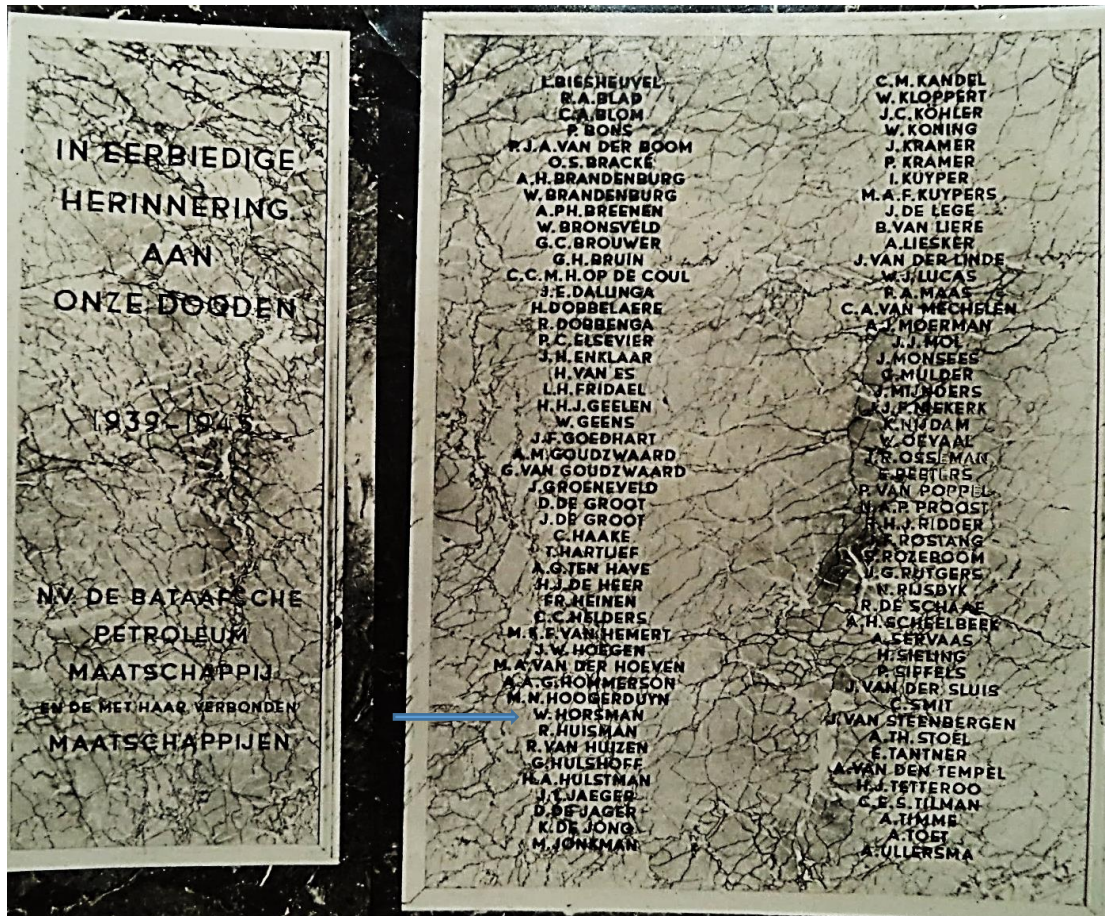 IN EERBIEDIGE
HERINNERING
AAN
ONZE DOODEN
1939-1945
N.V. DE BATAAFSCHE
PETROLEUM
MAATSCHAPPIJ
EN DE MET HAAR VERBONDEN
MAATSCHAPPIJEN
L.BIESHEUVEL
R.A.BLAD
C.A.BLOM
P. BONS
P.J.A.VAN DER BOOM
O.S.BRACKÉ
A.H.BRANDENBURG
W.BRANDENBURG
A.PH.BREENEN
W.BRONSVELD
G.C.BROUWER
G.H.BRUIN
C.C.M.H.OP DE COUL
J.E.DALINGA
H.DOBBELAERE
R.DOBBENGA
P.C.ELSEVIER
J.N.ENKLAAR
H.VAN ES
L.H.FRIDAEL
H.H.J.GEELEN
W.GEENS
J.F.GOEDHART
A.M.GOUDZWAARD
G.VAN GOUDZWAARD
J.GROENEVELD
D.DE GROOT
J.DE GROOT
C.HAAKE
T.HARTLIEF
A.G.TEN HAVE
H.J.DE HEER
FR.HEINEN
C.C.HELDERS
M.E.F.VAN HEMERT
J.W.HOEGEN
M.A.VAN DER HOEVEN
A.A.G.HOMMERSON
M.N.HOOGERDUYN
W.HORSMAN
R.HUISMAN
R.VAN HUIZEN
G.HULSHOFF
H.A.HULSTMAN
J.L.JAEGER
D.DE JAGER
K.DE JONG
M.JONKMAN
C.M.KANDEL
W.KLOPPERT
J.C.KÖHLER
W.KONING
J.KRAMER
P.KRAMER
I.KUYPER
M.A.F.KUYPERS
J.DE LEGE
B.VAN LIERE
A.LIESKER
J.VAN DER LINDE
W.J.LUCAS
P.A.MAAS
C.A.VAN MECHELEN
A.J.MOERMAN
J.J.MOL
J.MONSEES
G.MULDER
J.MIJNDERS
NIEKERK
K.NIJDAM
W.OEVAAL
J.R.OSSEMAN
PEETERS
P.VAN POPPEL
N.A.P.PROOST
H.H.J.RIDDER
ROSTANG
ROZEBOOM
J.G.RUTGERS
N.RIJSDYK
R.DE SCHAAF
A.H.SCHEELBEEK
A.SERVAAS
H.SIELING
P.SIFFELS
J.VAN DER SLUIS
C.SMIT
J.VAN STEENBERGEN
A.TH.STOEL
E.TANTNER
A.VAN DEN TEMPEL
H.J.TETTEROO
C.E.S.TILMAN
A.TIMME
A.TOET
A.ULLERSMA